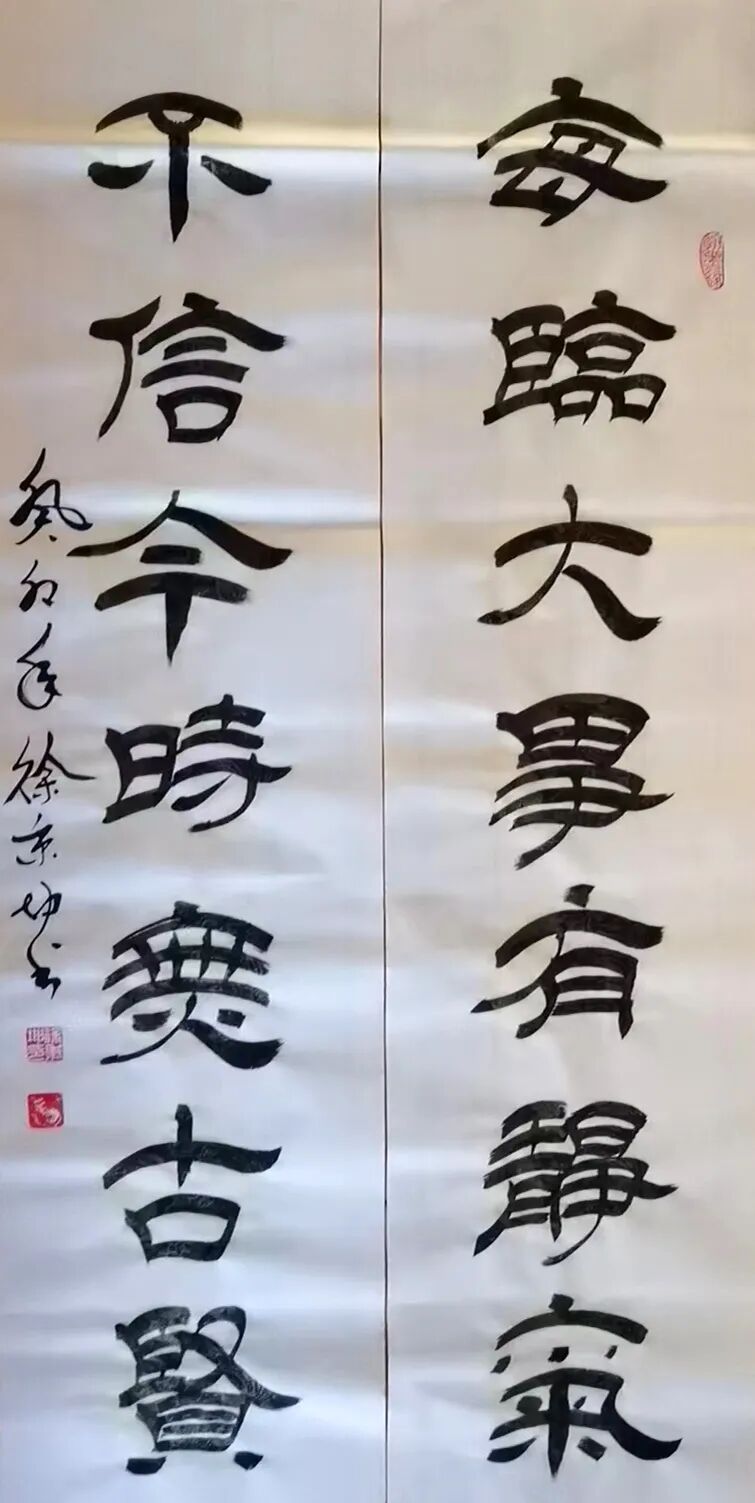 每臨大事有静氣
不信今時無古賢
癸卯年徐京坤書